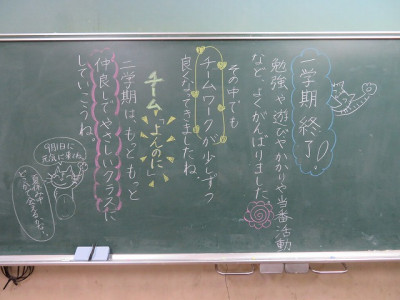 一学期 終了!
勉強や遊びやかかりや当番活動
など、よくがんばりました。
その中でも
チームワークが少しずつ
良くなってきましたね。
チーム「よんのに」
二学期は、もっともっと
仲良しでやさしいクラスに
していこうね。
9月1日に
元気に来てね。